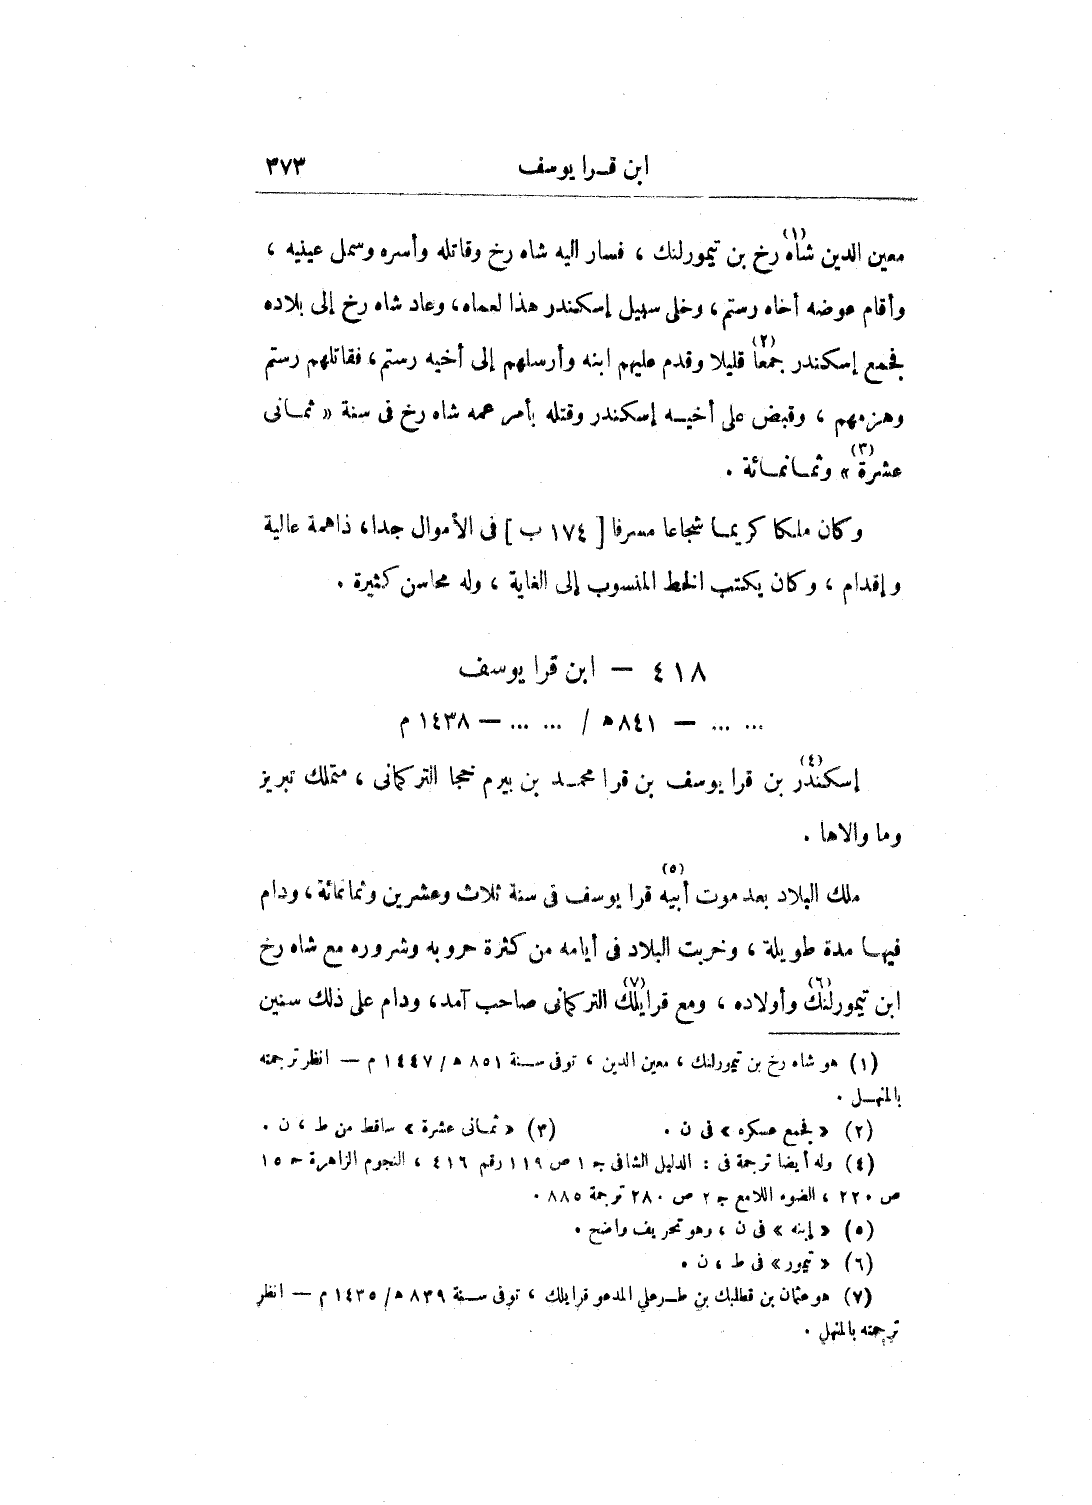 ابن قرا يوسف ٣٧٣
معين الدين شاه(١) رخ بن تيمورلنك ، فسار اليه شاه رخ وقاتله وأسره وسمل عينيه ،
وأقام عوضه أخاه رستم ، وخلى سبيل إسكندر هذا لعماه ، وعاد شاه رخ إلى بلاده
فجمع إسكندر جمعا(٢) قليلا وقدم عليهم ابنه وأرسلهم إلى أخيه رستم ، فقاتلهم رستم
وهزمهم ، وقبض على أخيه إسكندر وقتله بأمر عمه شاه رخ فى سنة « ثمانى
عشرة(٣) » وثمانمائة .
وكان ملكا كريما شجاعا مسرفا [ ١٧٤ ب ] فى الأموال جدا ، ذاهمة عالية
وإقدام ، وكان يكتب الخط المنسوب إلى الغاية ، وله محاسن كثيرة .
٤١٨ – ابن قرا يوسف
... ... – ٨٤١ هـ / ... ... – ١٤٣٨ م
إسكندر(٤) بن قرا يوسف بن قرا محمد بن بيرم خجا التركمانى ، متملك تبريز
وما والاها .
ملك البلاد بعد موت أبيه(٥) قرا يوسف فى سنة ثلاث وعشرين وثمانمائة ، ودام
فيها مدة طويلة ، وخربت البلاد فى أيامه من كثرة حروبه وشروره مع شاه رخ
ابن تيمورلنك(٦) وأولاده ، ومع قرايلك(٧) التركمانى صاحب آمد ، ودام على ذلك سنين
(١) هو شاه رخ بن تيمورلنك ، معين الدين ، توفى سنة ٨٥١ هـ / ١٤٤٧ م – انظر ترجمته
بالمنهل .
(٢) « فجمع عسكره » فى ن . (٣) « ثمانى عشرة » ساقط من ط ، ن .
(٤) وله أيضا ترجمة فى : الدليل الشافى جـ ١ ص ١١٩ رقم ٤١٦ ، النجوم الزاهرة جـ ١٥
ص ٢٢٠ ، الضوء اللامع جـ ٢ ص ٢٨٠ ترجمة ٨٨٥ .
(٥) « إبنه » فى ن ، وهو تحريف واضح .
(٦) « تيمور » فى ط ، ن .
(٧) هو عثمان بن قطلبك بن طرعلي المدعو قرايلك ، توفى سنة ٨٣٩ هـ / ١٤٣٥ م – انظر
ترجمته بالمنهل .